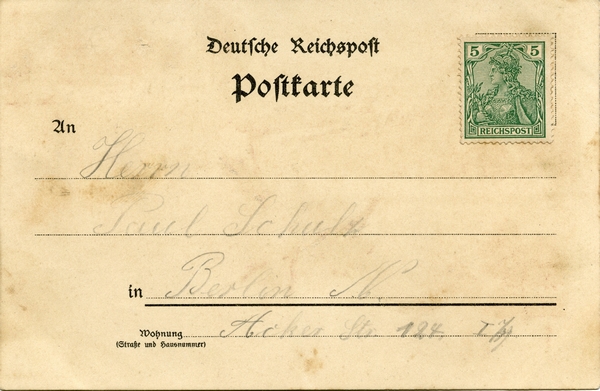 Deutsche Reichspost
Postkarte
5 5
REICHSPOST
An
Herrn
Paul Schulz
in Berlin N.
Wohnung Acker Str. 124.
(Straße und Hausnummer)